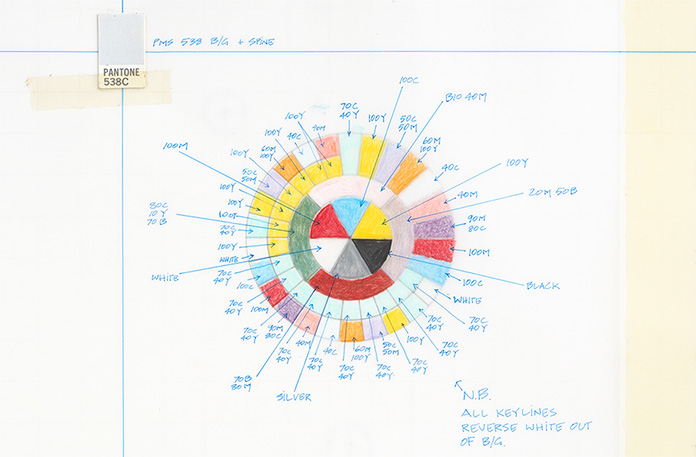 PMS 538 B/G + SPINE
PANTONE
538C
100C
B10 40M
70C
40Y
100Y
50C
50M
60M
100Y
40C
100Y
40M
20M 50B
90M
80C
100M
100C
BLACK
WHITE
70C
40Y
70C
40Y
70C
40Y
100Y
50C
50M
70C
40Y
60M
100Y
70C
40Y
40C
70C
40Y
SILVER
40M
70B
80M
90M
80C
70C
40Y
100M
70C
40Y
100C
70C
40Y
WHITE
WHITE
100Y
70C
40Y
100Y
80C
10Y
70B
100Y
100Y
50C
50M
100Y
60M
100Y
100M
100Y
40C
100Y
40M
N.B.
ALL KEYLINES
REVERSE WHITE OUT
OF B/G.